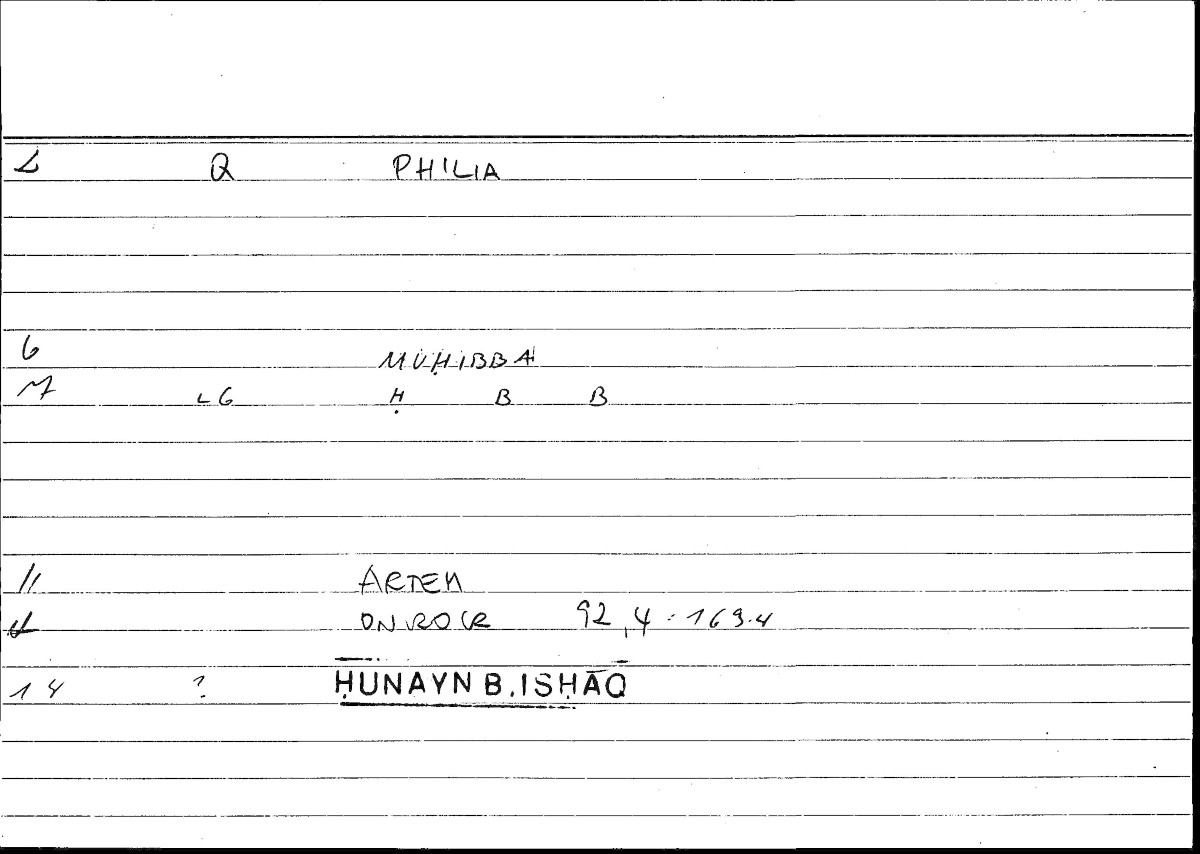 Q PHILIA
6 MUḤIBBAH
7 LG Ḥ B B
11 ARTEM
ONROCR 92,4 : 169.4
14 ? ḤUNAYN B. ISḤĀQ